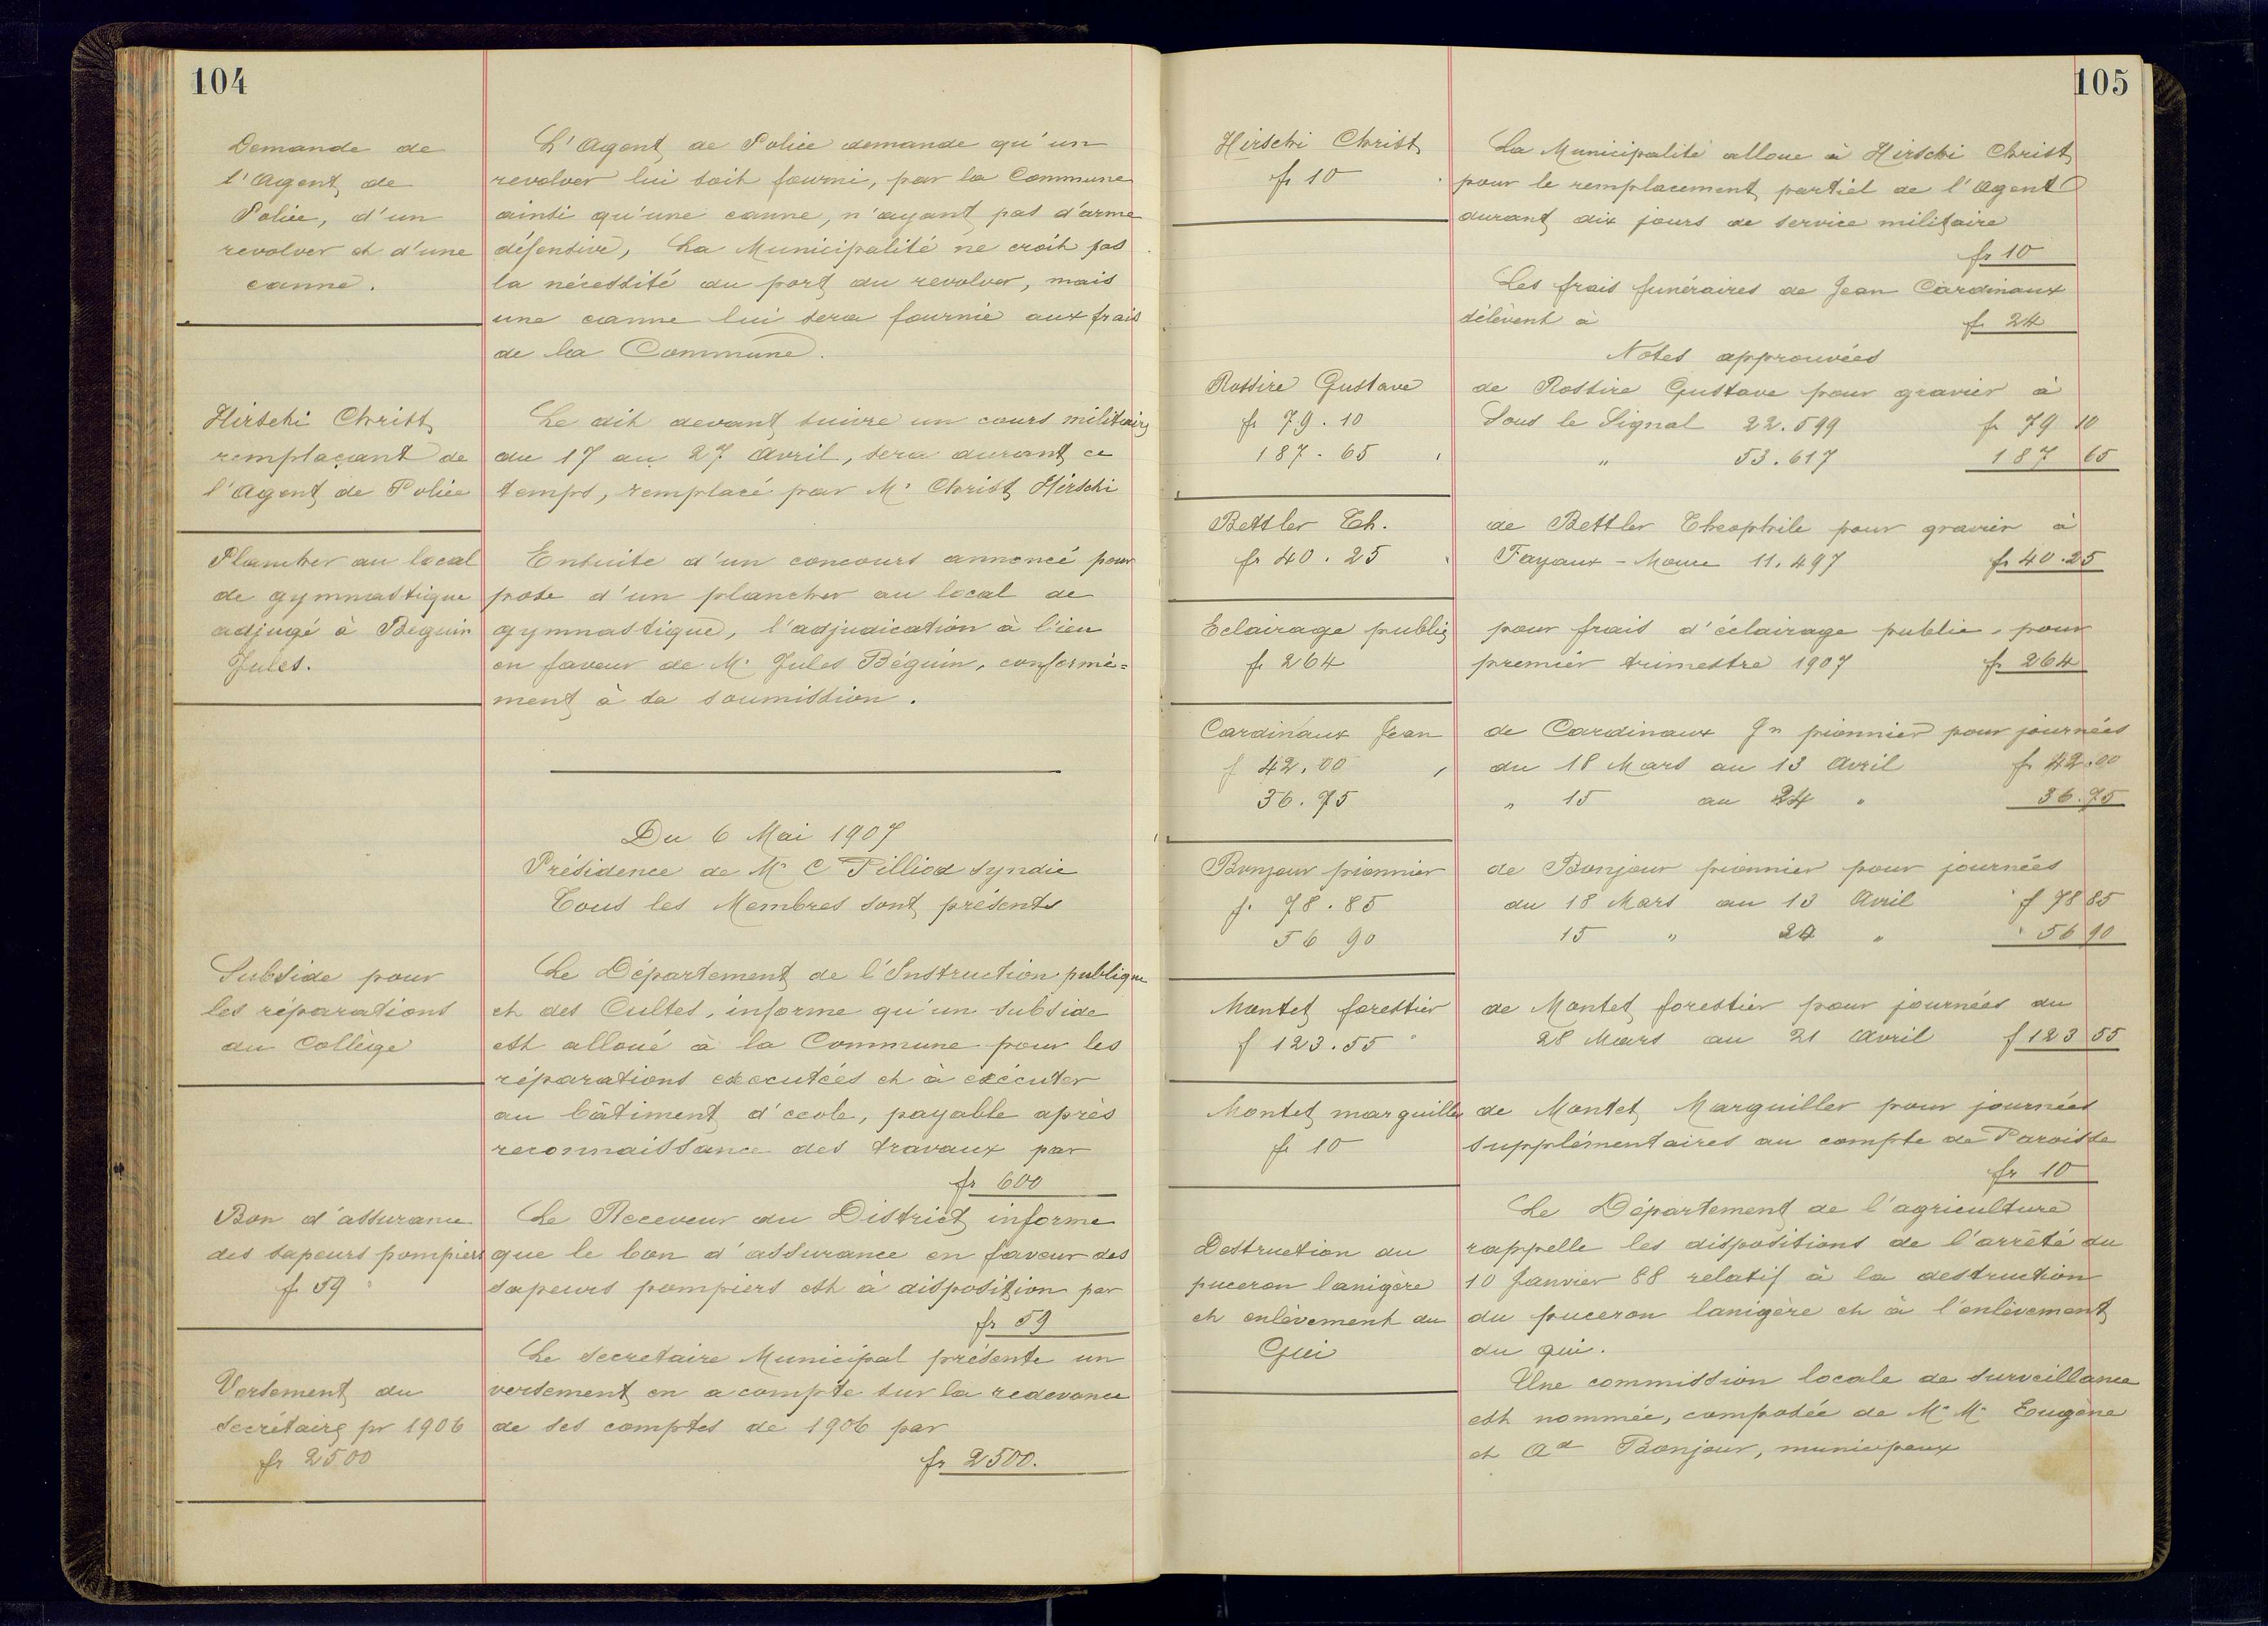 104
Demande de
l'Agent de
Police, d'un
revolver et d'une
canne.
L'Agent de Police demande qu'un
revolver lui soit fourni, par la Commune
ainsi qu'une canne, n'ayant pas d'arme
défensive, La Municipalité ne croit pas
la nécessité du port du revolver, mais
une canne lui sera fournie aux frais
de la Commune.
Hirschi Christ
remplaçant de
l'Agent de Police
Le dit devant suivre un cours militaire
du 17 au 27 Avril, sera durant ce
temps, remplacé par Mr Christ Hirschi
Plancher au local
de gymnastique
adjugé à Béguin
Jules.
Ensuite d'un concours annoncé pour
pose d'un plancher au local de
gymnastique, l'adjudication à lieu
en faveur de Mr Jules Béguin, conformé=
ment à sa soumission.
Du 6 Mai 1907
Présidence de Mr C Pilliod syndic
Tous les Membres sont présents
Subside pour
les réparations
du Collège
Le Département de l'Instruction publique
et des Cultes, informe qu'un subside
est alloué à la Commune pour les
réparations executées et à exécuter
au bâtiment d'ecole, payable après
reconnaissance des travaux par
fr 600
Bon d'assurance
des sapeurs pompiers
fr 59
Le Receveur du District informe
que le bon d'assurance en faveur des
sapeurs pompiers est à disposition par
fr 59
Versement du
secrétaire pr 1906
fr 2500
Le secretaire Municipal présente un
versement en a compte sur la redevance
de ses comptes de 1906 par
fr 2500.
105
Hirschi Christ
fr 10
La Municipalité alloue à Hirschi Christ
pour le remplacement partiel de l'Agent
durant dix jours de service militaire
fr 10
Les frais funéraires de Jean Cardinaux
s'élèvent à fr 24
Notes approuvées
Rossire Gustave
fr 79.10
187.65
de Rossire Gustave pour gravier à
Sous le Signal 22.599 fr 79 10
" 53.617 187 65
Bettler Th.
fr 40.25
de Bettler Theophile pour gravier à
Fayaux - Moure 11.497 fr 40.25
Eclairage public
fr 264
pour frais d'éclairage public, pour
premier trimestre 1907 fr 264
Cardinaux Jean
f 42.00
36.75
de Cardinaux Jn pionnier pour journées
du 18 Mars au 13 Avril fr 42.00
" 15 au 24 " 36.75
Bonjour pionnier
f. 78.85
56 90
de Bonjour pionnier pour journées
du 18 Mars au 13 Avril f 78 85
15 " 24 " 56 90
Montet forestier
f 123.55
de Montet forestier pour journées du
28 Mars au 21 Avril f 123 55
Montet marguiller
fr 10
de Montet Marguiller pour journées
supplémentaires au compte de Paroisse
fr 10
Destruction du
puceron lanigère
et enlèvement du
Gui
Le Département de l'agriculture
rappelle les dispositions de l'arrêté du
10 Janvier 88 relatif à la destruction
du puceron lanigère et à l'enlèvement
du gui.
Une commission locale de surveillance
est nommée, composée de Mr Mr Eugène
et Ad Bonjour, municipaux